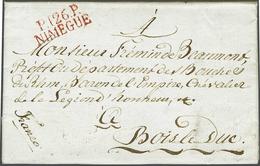 P.126.P.
NIMÈGUE
À
Monsieur Frémin de Beaumont,
Préfet du département des Bouches
du Rhin, Baron de l'Empire, Chevalier
de la Légion d'honneur, &
à
Bois le Duc.
Franco